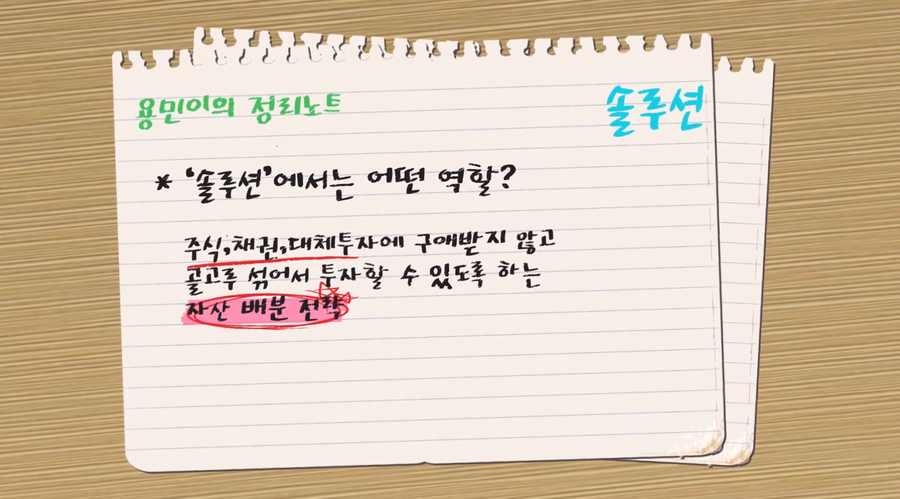 용민이의 정리노트
솔루션
* '솔루션'에서는 어떤 역할?
주식,채권,대체투자에 구애받지 않고
골고루 섞어서 투자할 수 있도록 하는
자산 배분 전략